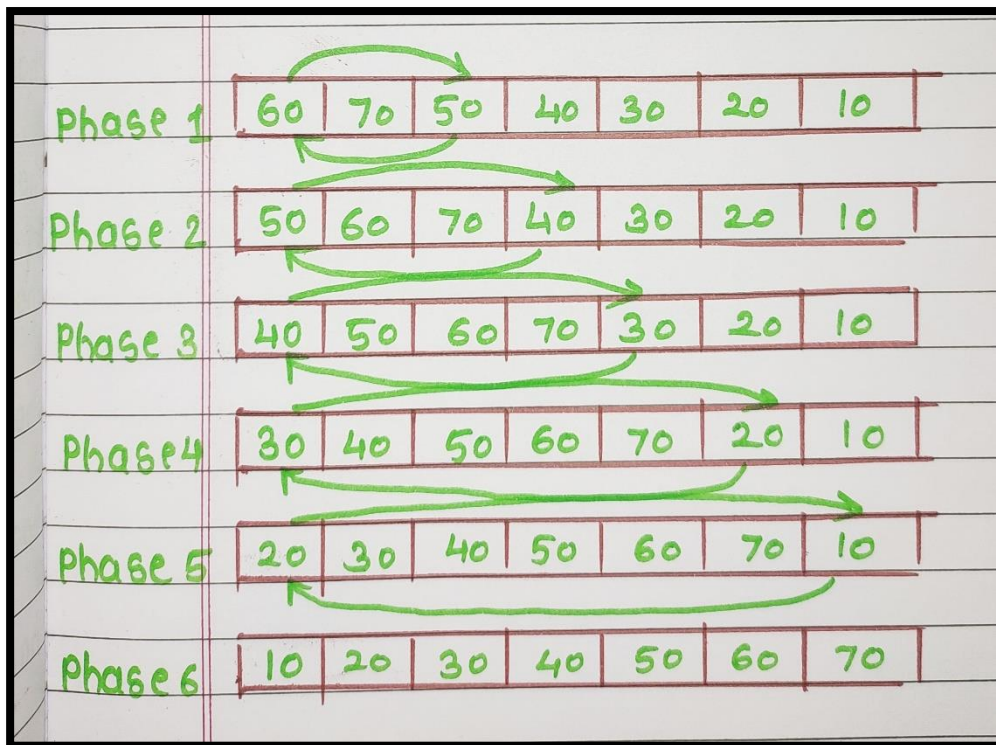 Phase 1 60 70 50 40 30 20 10
Phase 2 50 60 70 40 30 20 10
Phase 3 40 50 60 70 30 20 10
Phase4 30 40 50 60 70 20 10
Phase 5 20 30 40 50 60 70 10
Phase6 10 20 30 40 50 60 70